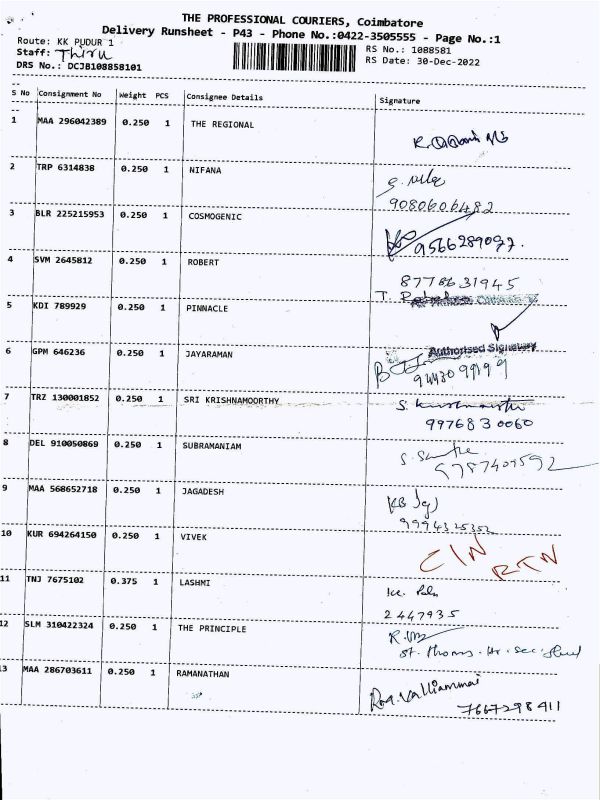 THE PROFESSIONAL COURIERS, Coimbatore
Delivery Runsheet - P43 - Phone No.:0422-3505555 - Page No.:1
Route: KK PUDUR 1
RS No.: 1088581
Staff: Thiru
RS Date: 30-Dec-2022
DRS No.: DCJB108858101
S No Consignment No Weight PCS Consignee Details Signature
1 MAA 296042389 0.250 1 THE REGIONAL
2 TRP 6314838 0.250 1 NIFANA
9080606482
3 BLR 225215953 0.250 1 COSMOGENIC
9566289097.
4 SVM 2645812 0.250 1 ROBERT
8778631945
5 KDI 789929 0.250 1 PINNACLE
Authorised Signatory
6 GPM 646236 0.250 1 JAYARAMAN
7 TRZ 130001852 0.250 1 SRI KRISHNAMOORTHY
9976830060
8 DEL 910050869 0.250 1 SUBRAMANIAM
9787409592
9 MAA 568652718 0.250 1 JAGADESH
9994325352
10 KUR 694264150 0.250 1 VIVEK
RTN
11 TNJ 7675102 0.375 1 LASHMI
2447935
12 SLM 310422324 0.250 1 THE PRINCIPLE
St. Thomas. Hr. Sec.
13 MAA 286703611 0.250 1 RAMANATHAN
Valliammai
7667298411